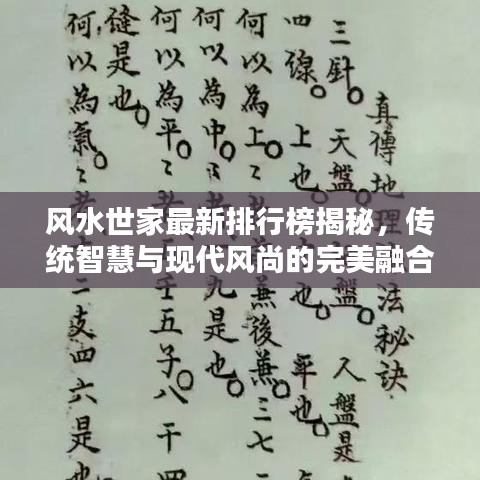 真傳地理法秘訣
三針。天盤人盤是
四線。上也。平也。
何以為上。後兼。三七
何以為中。九是也。
何以為平。五子。八干四
縫是也。
何以為氣。二支四六是也
风水世家最新排行榜揭秘，传
统智慧与现代风尚的完美融合